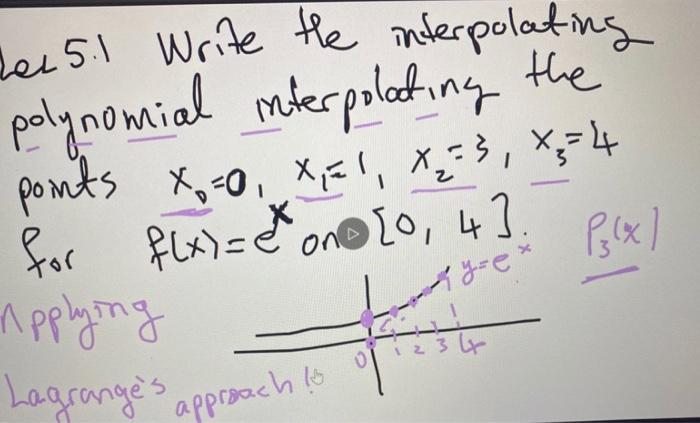 Lec 5.1 Write the interpolating
polynomial interpolating the
points x₀=0, x₁=1, x₂=3, x₃=4
for f(x)=eˣ on [0, 4]. P₃(x)
y=eˣ
0 1 2 3 4
Applying
Lagrange's approach!